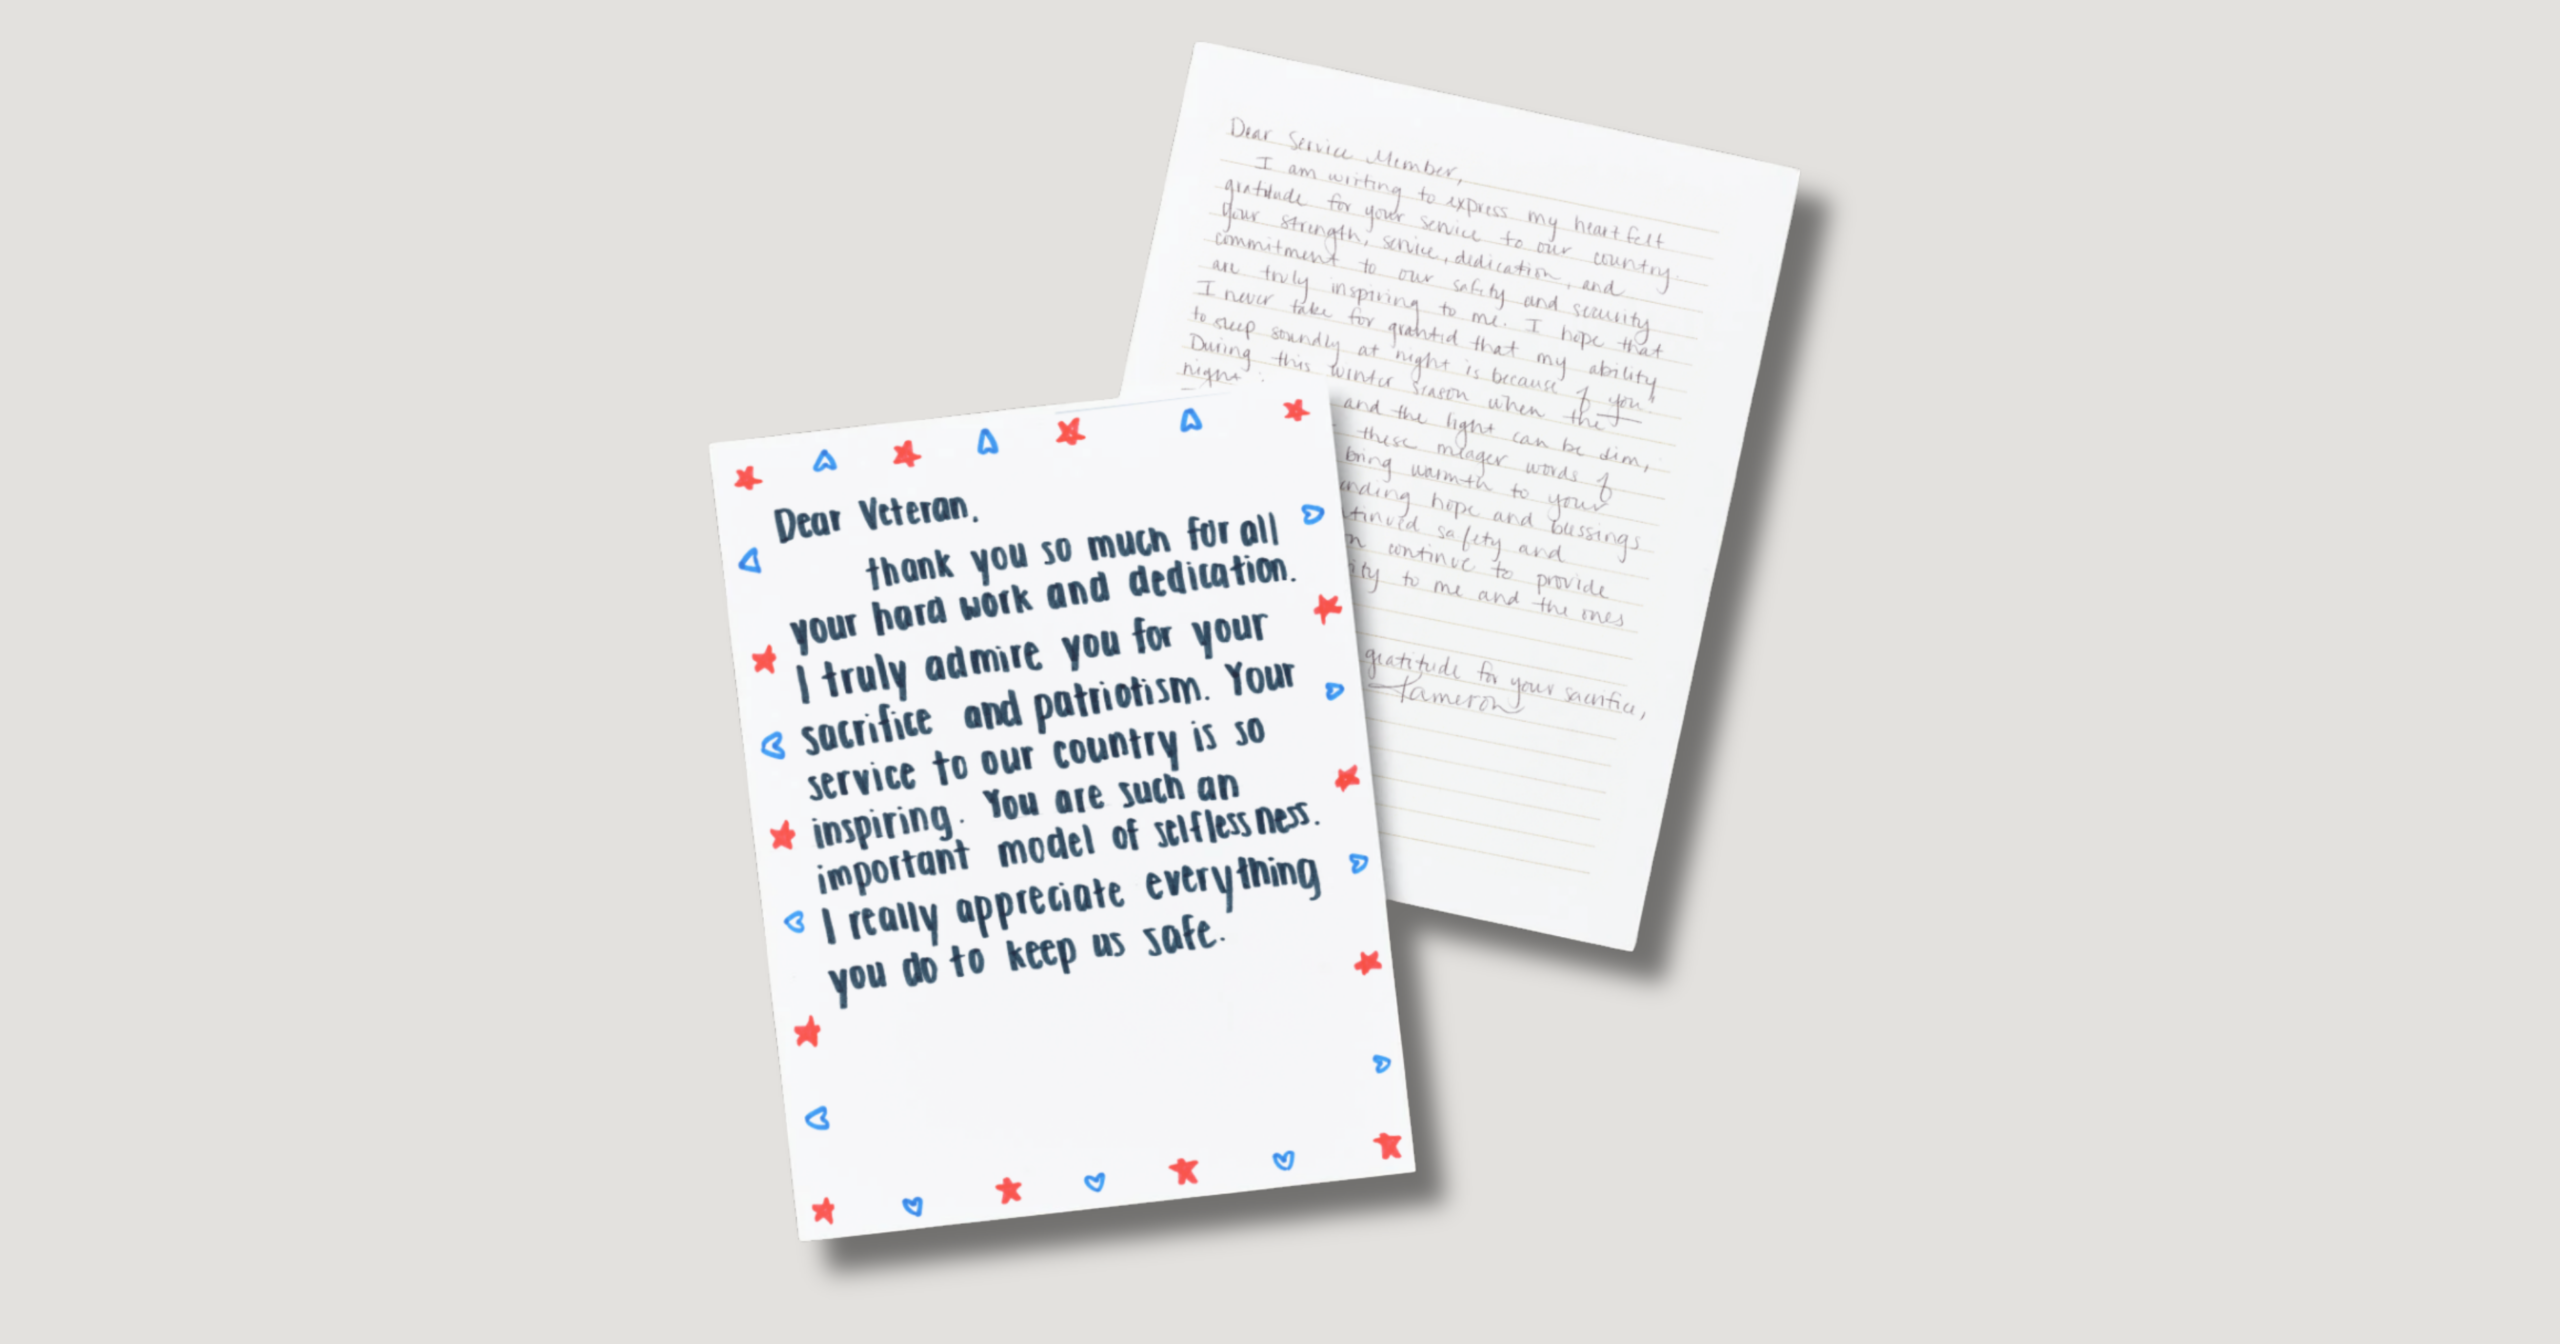 Dear Veteran.
thank you so much for all
your hard work and dedication.
I truly admire you for your
sacrifice and patriotism. Your
service to our country is so
inspiring. You are such an
important model of selflessness.
I really appreciate everything
you do to keep us safe.
Dear Service Member,
I am writing to express my heartfelt
gratitude for your service to our country.
Your strength, service, dedication, and
commitment to our safety and security
are truly inspiring to me. I hope that
I never take for granted that my ability
to sleep soundly at night is because of you!
During this winter season when the
night
and the light can be dim,
these meager words of
bring warmth to your
nding hope and blessings
tinued safety and
n continue to provide
ity to me and the ones
gratitude for your sacrifice,
Kameron